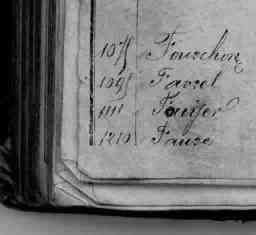 1075 Fourchon
1095 Favrel
1111 Fautser
1210 Fause